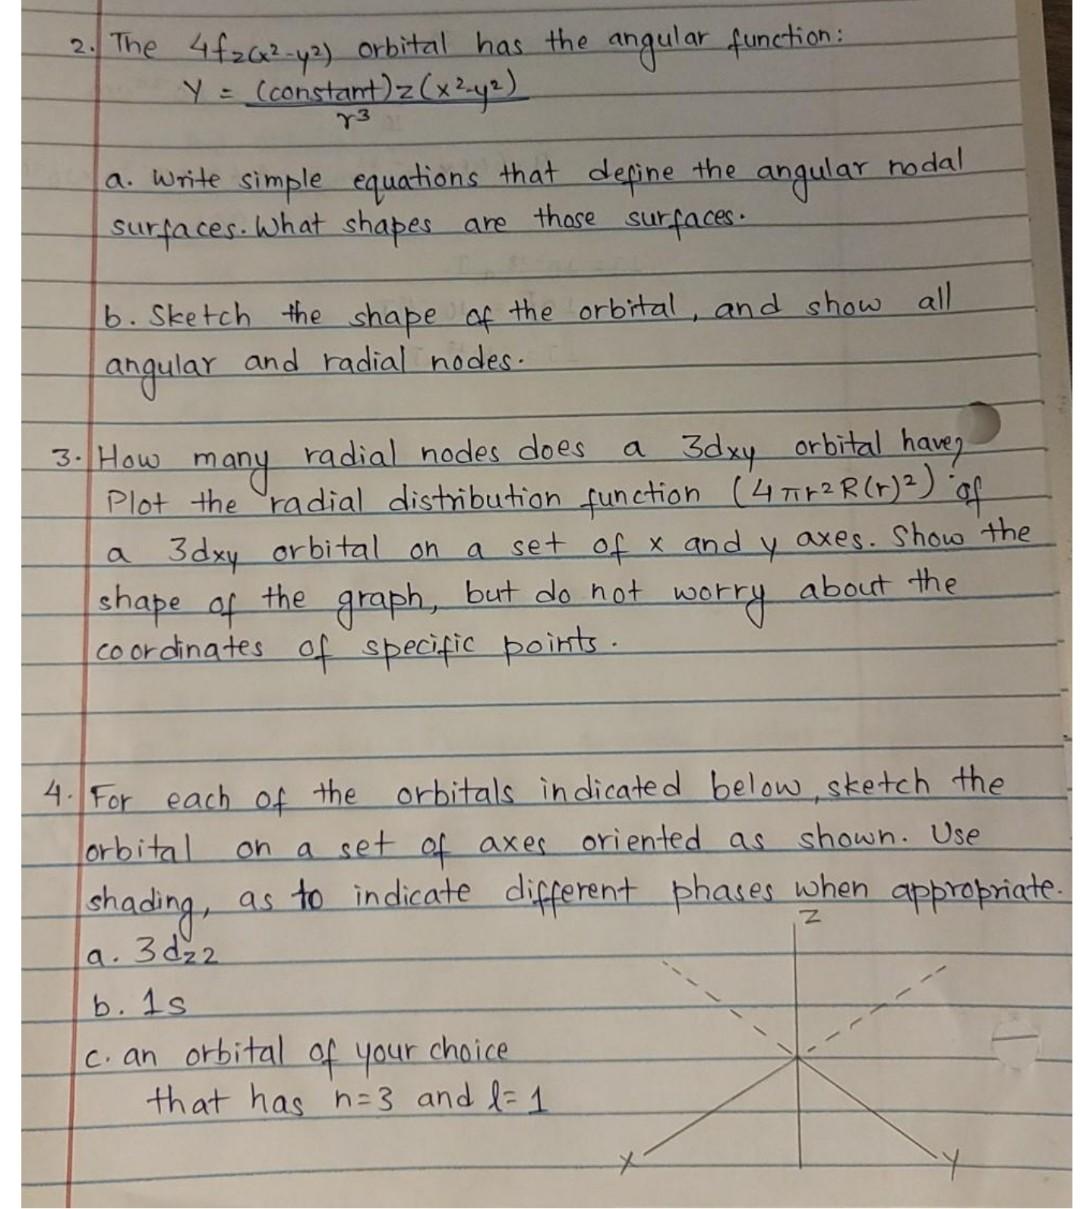 2. The 4fz(x²-y²) orbital has the angular function:
Y = (constant)z(x²-y²)
r³
a. Write simple equations that define the angular nodal
surfaces. What shapes are those surfaces.
b. Sketch the shape of the orbital, and show all
angular and radial nodes.
3. How many radial nodes does a 3dxy orbital have?
Plot the radial distribution function (4πr²R(r)²) of
a 3dxy orbital on a set of x and y axes. Show the
shape of the graph, but do not worry about the
coordinates of specific points.
4. For each of the orbitals indicated below, sketch the
orbital on a set of axes oriented as shown. Use
shading, as to indicate different phases when appropriate.
z
a. 3dz2
b. 1s
c. an orbital of your choice
that has n=3 and l=1
x
y